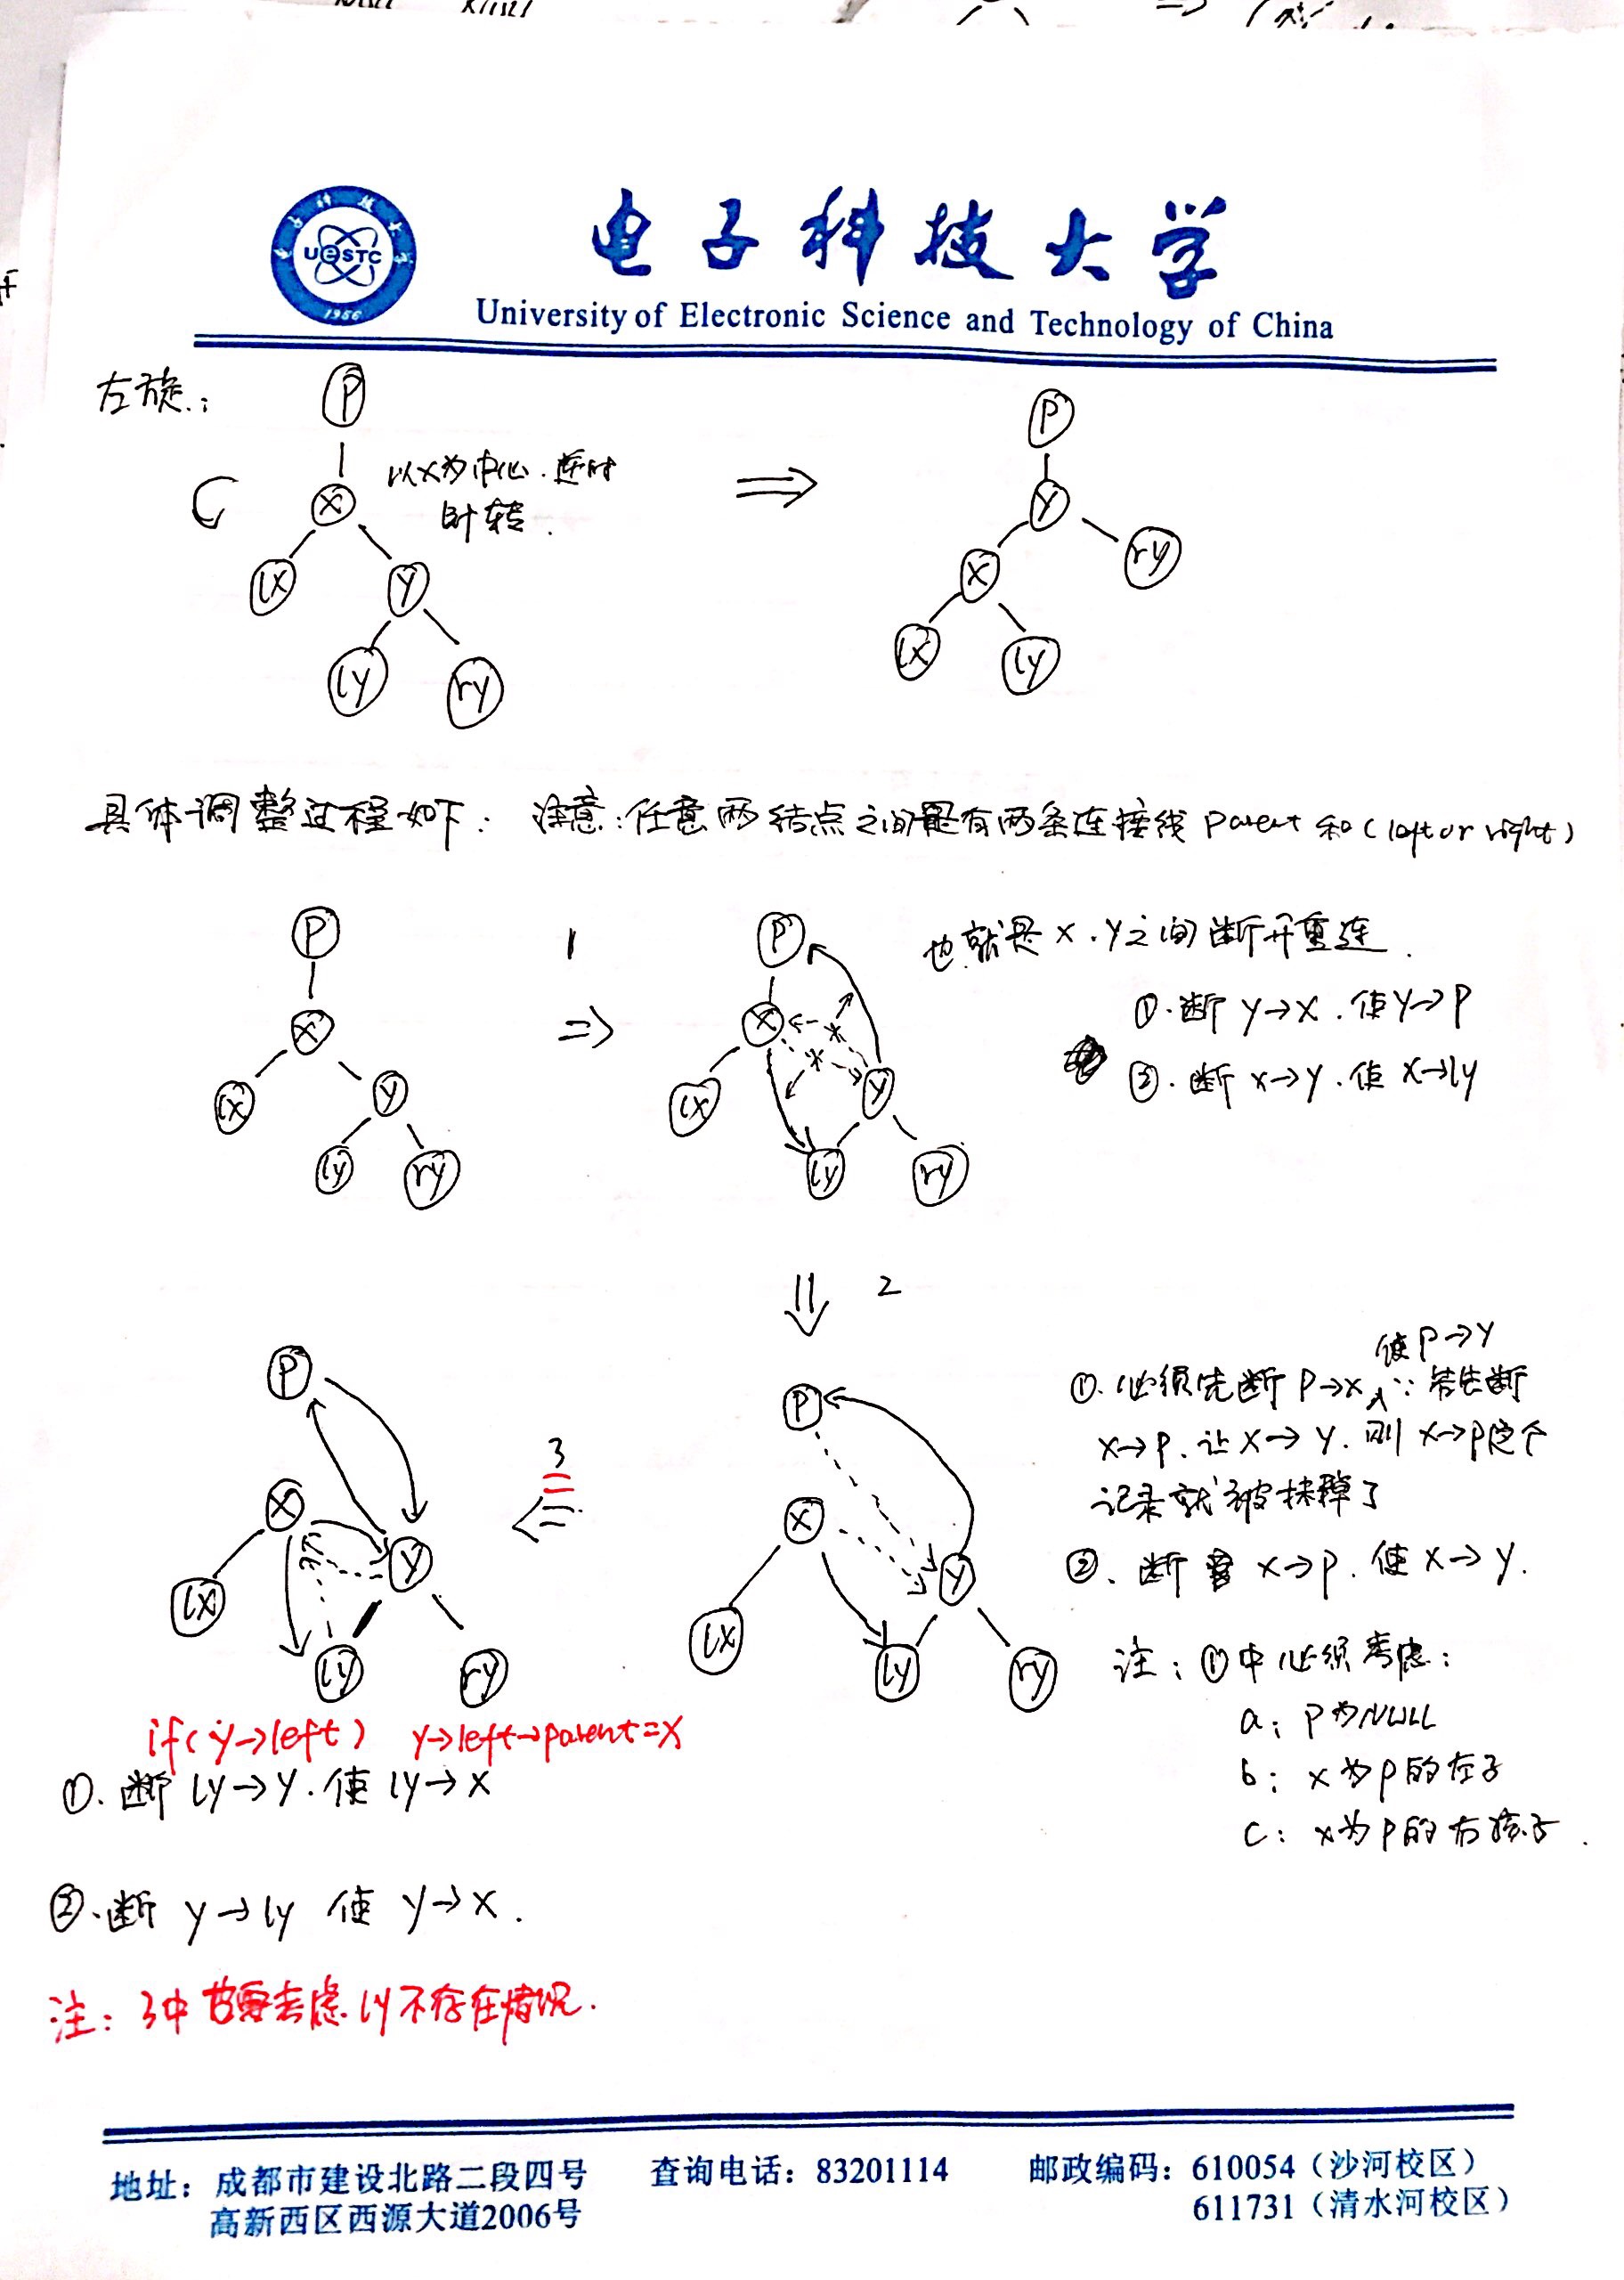 电子科技大学
UESTC
1956
University of Electronic Science and Technology of China
左旋:
P
以X为中心.逆时
针转.
X
lX
Y
ly
ry
⇒
P
Y
X
ry
lX
ly
具体调整过程如下: 注意:任意两结点之间是有两条连接线 parent 和(left or right)
P
X
lX
Y
ly
ry
1
⇒
P
X
lX
Y
ly
ry
也就是 X.Y之间断开重连.
①.断 Y→X.使Y→P
②.断 X→Y.使 X→ly
⇓ 2
P
X
lX
Y
ly
ry
使P→Y
①.必须先断 P→X ∵若先断
X→P.让X→Y.则 X→P这个
记录就被抹掉了
②.断 X→P.使 X→Y.
注:①中必须考虑:
a: P为NULL
b: X为P的左子
c: X为P的右孩子.
3
⇐
P
X
lX
Y
ly
ry
if(y→left) y→left→parent=X
①.断 ly→Y.使 ly→X
②.断 Y→ly 使 Y→X.
注:3中 需要考虑 ly不存在情况.
地址:成都市建设北路二段四号 查询电话:83201114 邮政编码:610054(沙河校区)
高新西区西源大道2006号 611731(清水河校区)